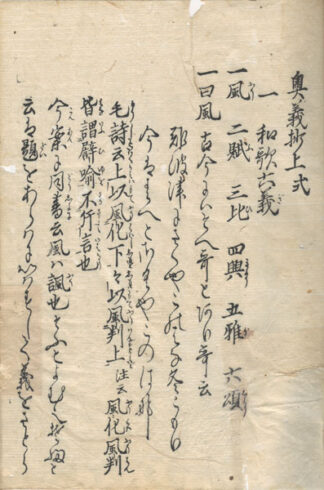 奥義抄上式
一 和歌六義
一風 二賦 三比 四興 五雅 六頌
一曰風 古今にはそへ哥とあり哥云
難波津にさくやこの花冬こもり
今ははるへとさくやこのはな
毛詩云上以風化下々以風刺上 注云風化風刺
皆謂譬喩不斥言也
今案に同書云風は諷也そふとよむ
云は題をあらはにいはすして義をさとら